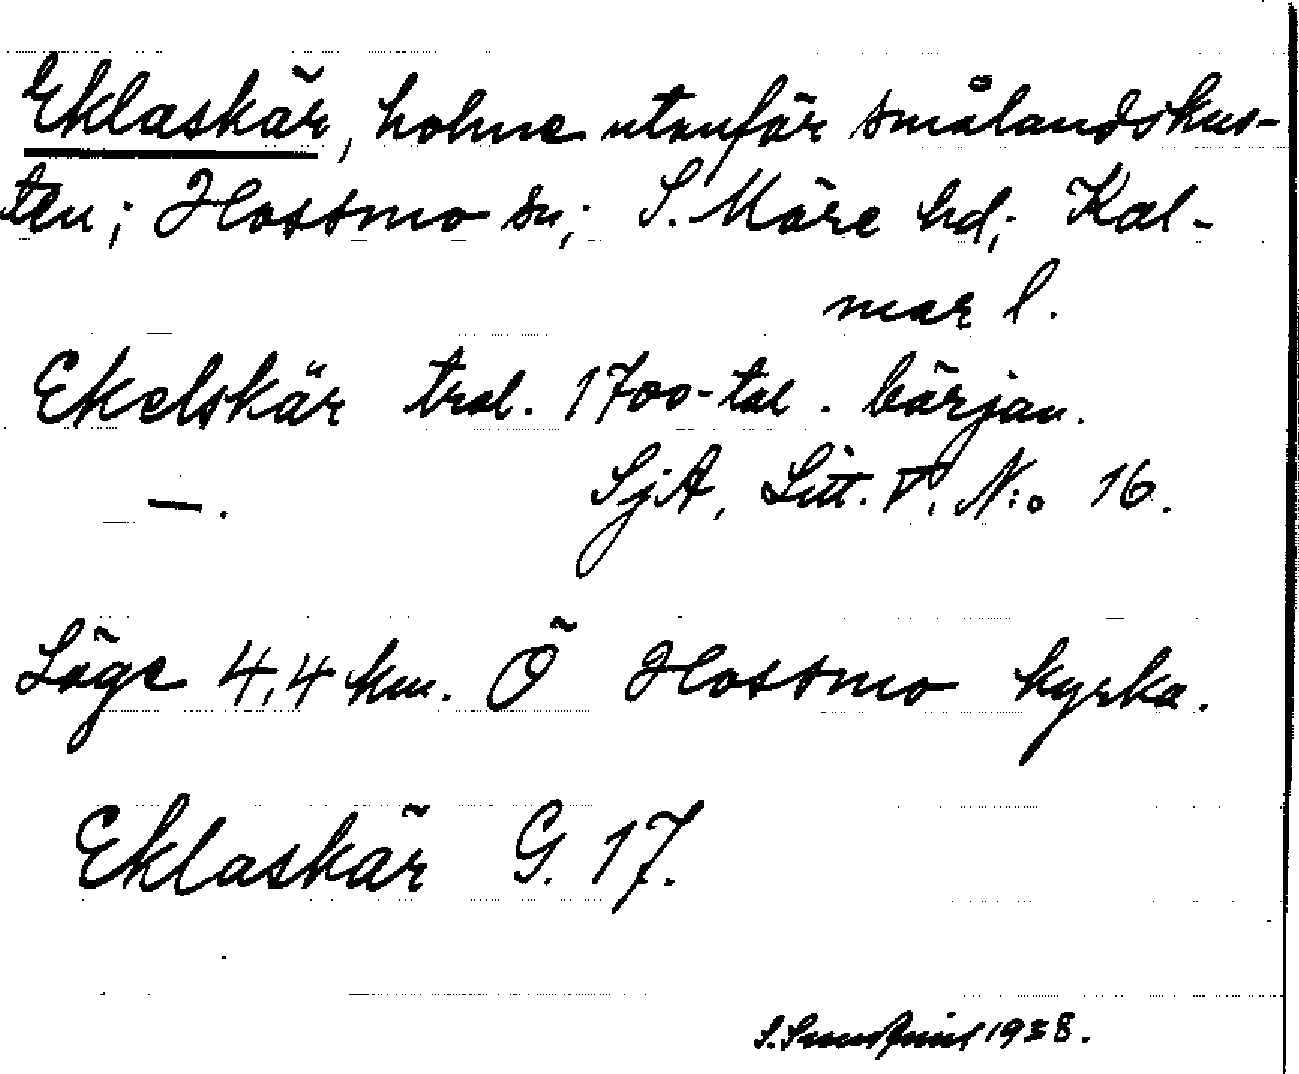 Eklaskär, holme utanför smålandskus-
ten; Hossmo sn; S. Möre hd; Kal-
mar l.
Ekelskär trol. 1700-tal. början.
—. SjA, Litt. V. N:o 16.
Läge 4,4 km. Ö Hossmo kyrka.
Eklaskär G. 17.
1938.